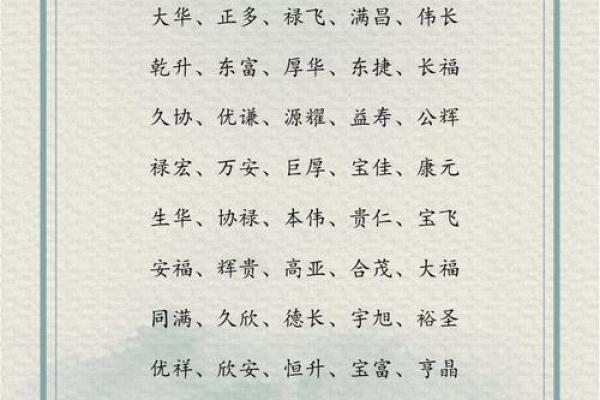 大华、正多、禄飞、满昌、伟长
乾升、东富、厚华、东捷、长福
久协、优谦、源耀、益寿、公辉
禄宏、万安、巨厚、宝佳、康元
生华、协禄、本伟、贵仁、宝飞
安福、辉贵、高亚、合茂、大福
同满、久欣、德长、宇旭、裕圣
优祥、欣安、恒升、宝富、亨晶